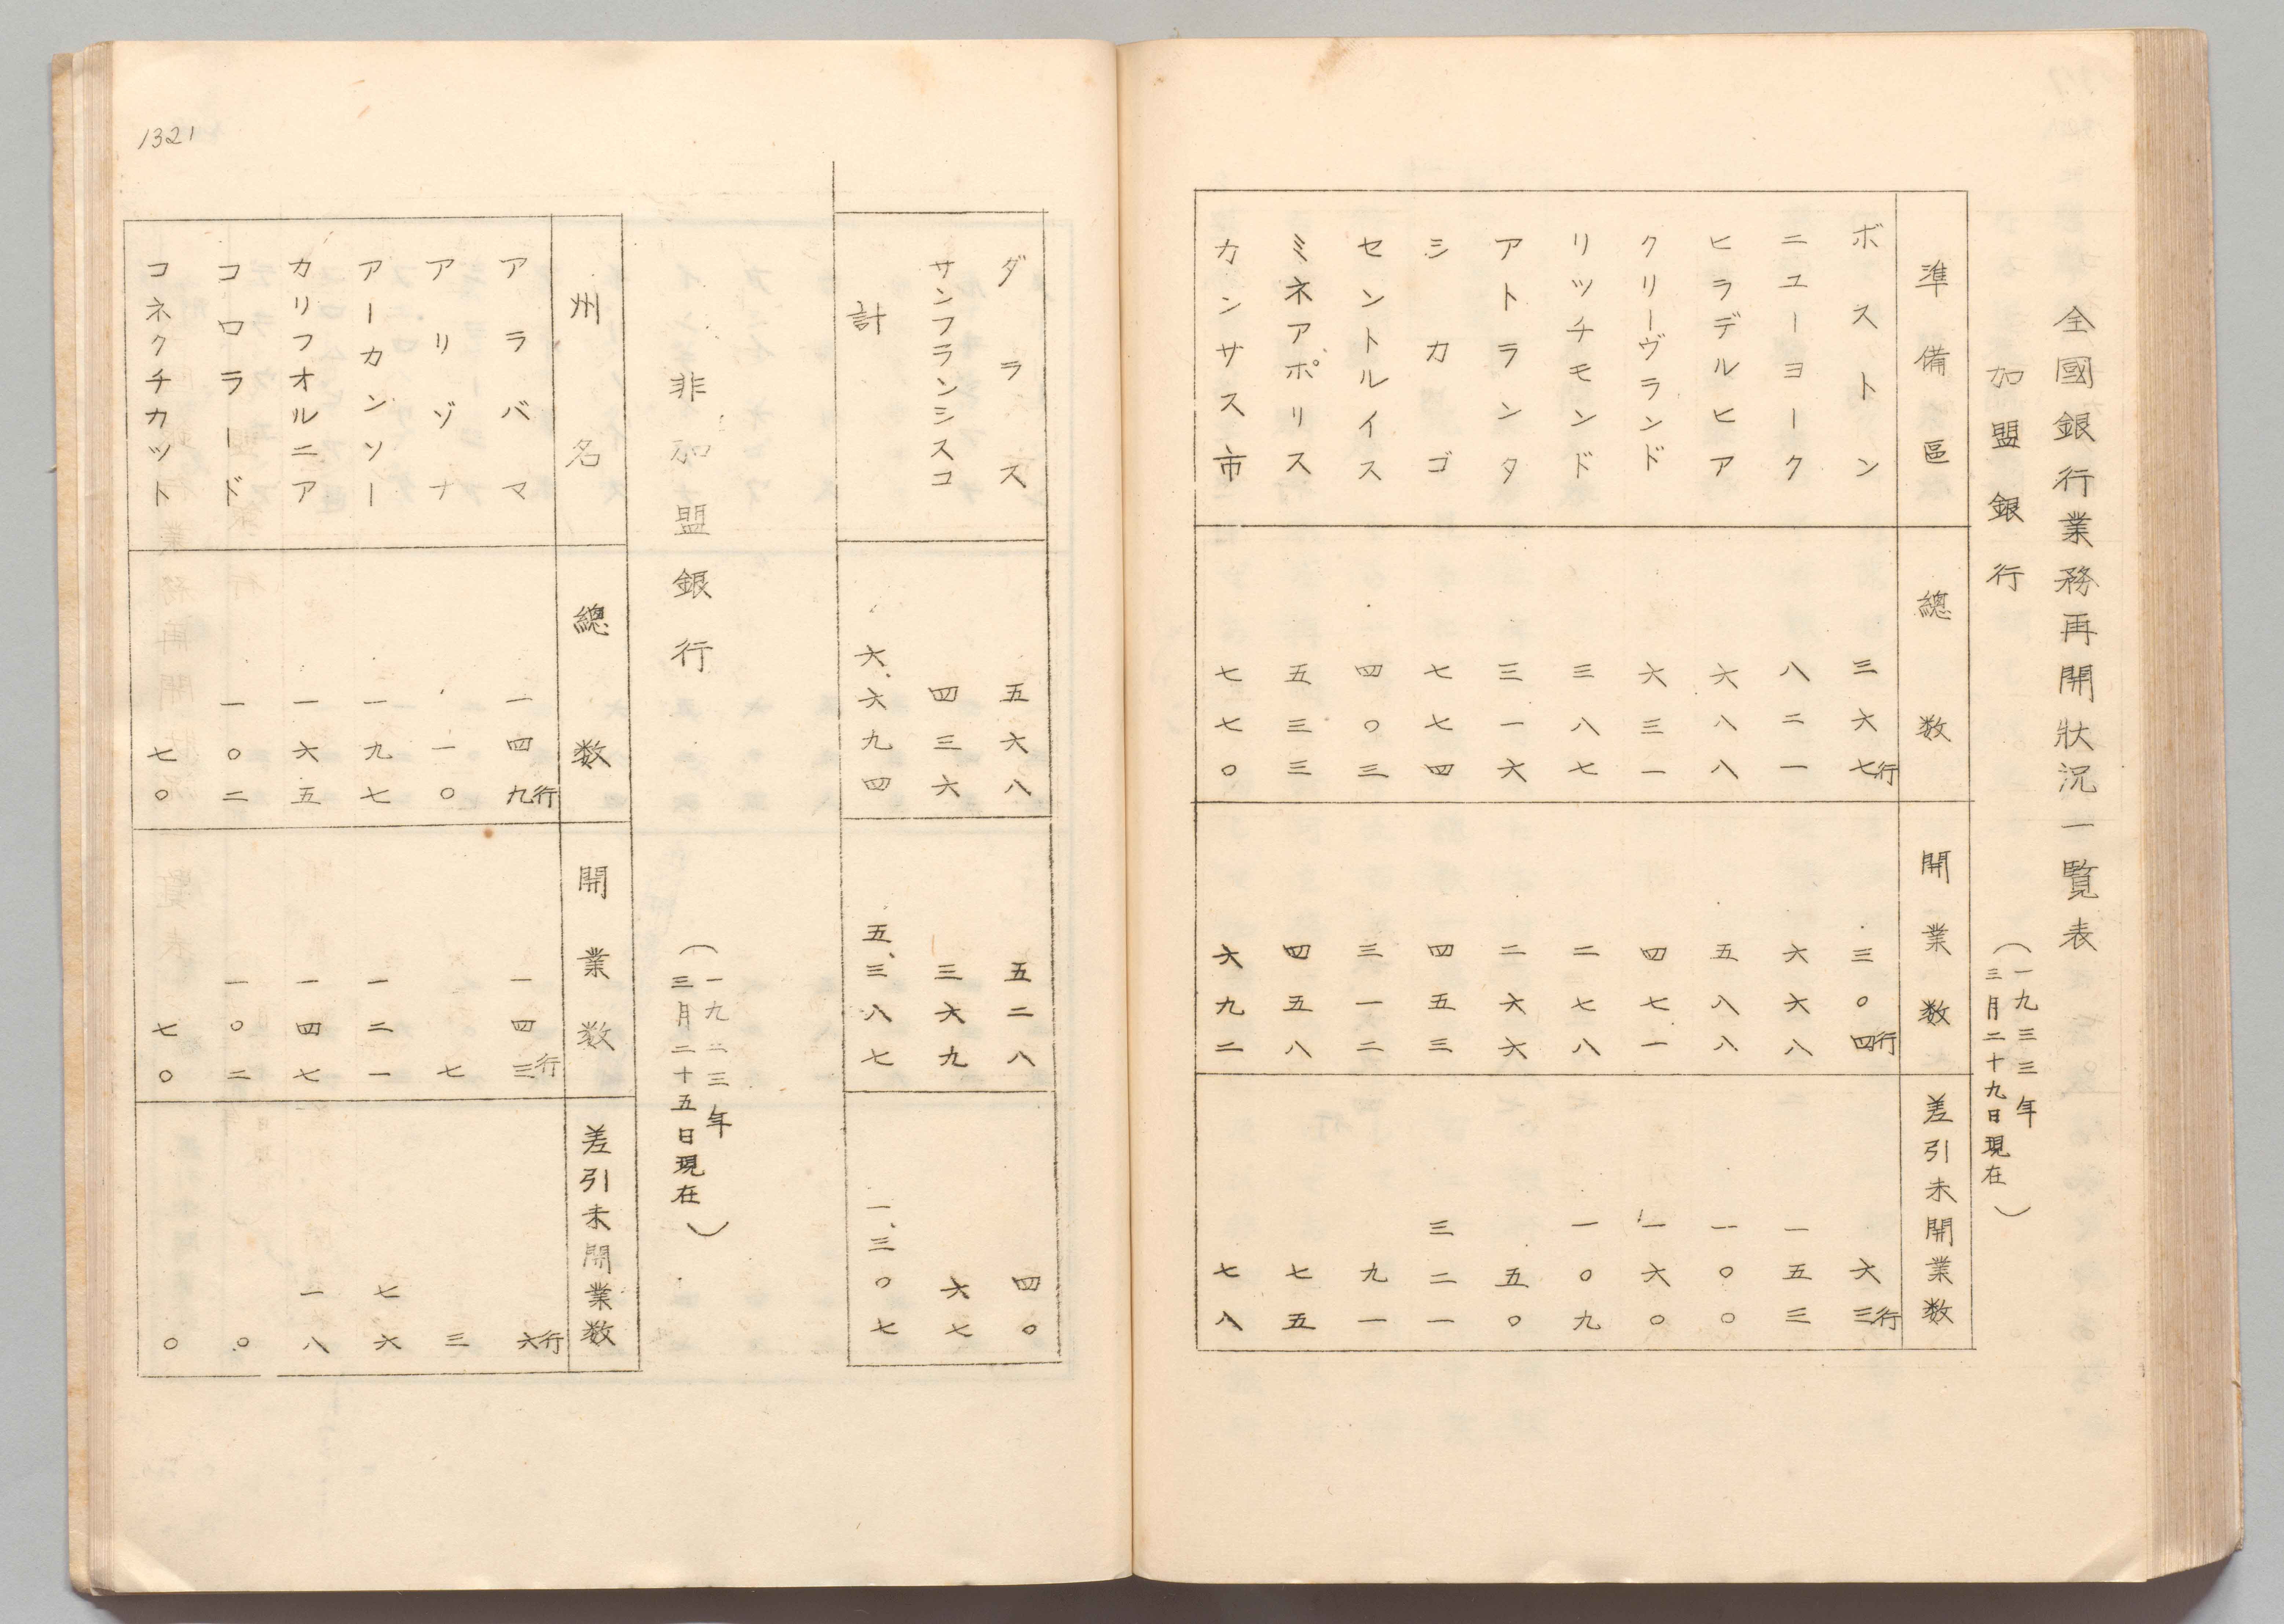 全國銀行業務再開狀況一覧表
加盟銀行
(一九三三年三月二十九日現在)
準備區 總数 開業数 差引未開業数
ボストン 三六七行 三〇四行 六三行
ニューヨーク 八二一 六六八 一五三
ヒラデルヒア 六八八 五八八 一〇〇
クリーヴランド 六三一 四七一 一六〇
リッチモンド 三八七 二七八 一〇九
アトランタ 三一六 二六六 五〇
シカゴ 七七四 四五三 三二一
セントルイス 四〇三 三一二 九一
ミネアポリス 五三三 四五八 七五
カンサス市 七七〇 六九二 七八
ダラス 五六八 五二八 四〇
サンフランシスコ 四三六 三六九 六七
計 六、六九四 五、三八七 一、三〇七
非加盟銀行
(一九三三年三月二十五日現在)
州名 總数 開業数 差引未開業数
アラバマ 一四九行 一四三行 六行
アリゾナ 一〇 七 三
アーカンソー 一九七 一二一 七六
カリフオルニア 一六五 一四七 一八
コロラード 一〇二 一〇二 〇
コネクチカット 七〇 七〇 〇
1321